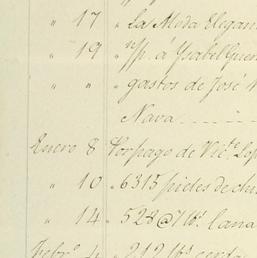 " 17 " La Moda Elegan
" 19 " n/p. á Ysabel Guer
" " " gastos de José
Nava
Enero 8 Por pago de Vic.te Lop
" 10 " 6315 pieles de chi
" 14 " 528 @ 7 lbs. lana
Febr.o 4 " 212 lbs. cerda